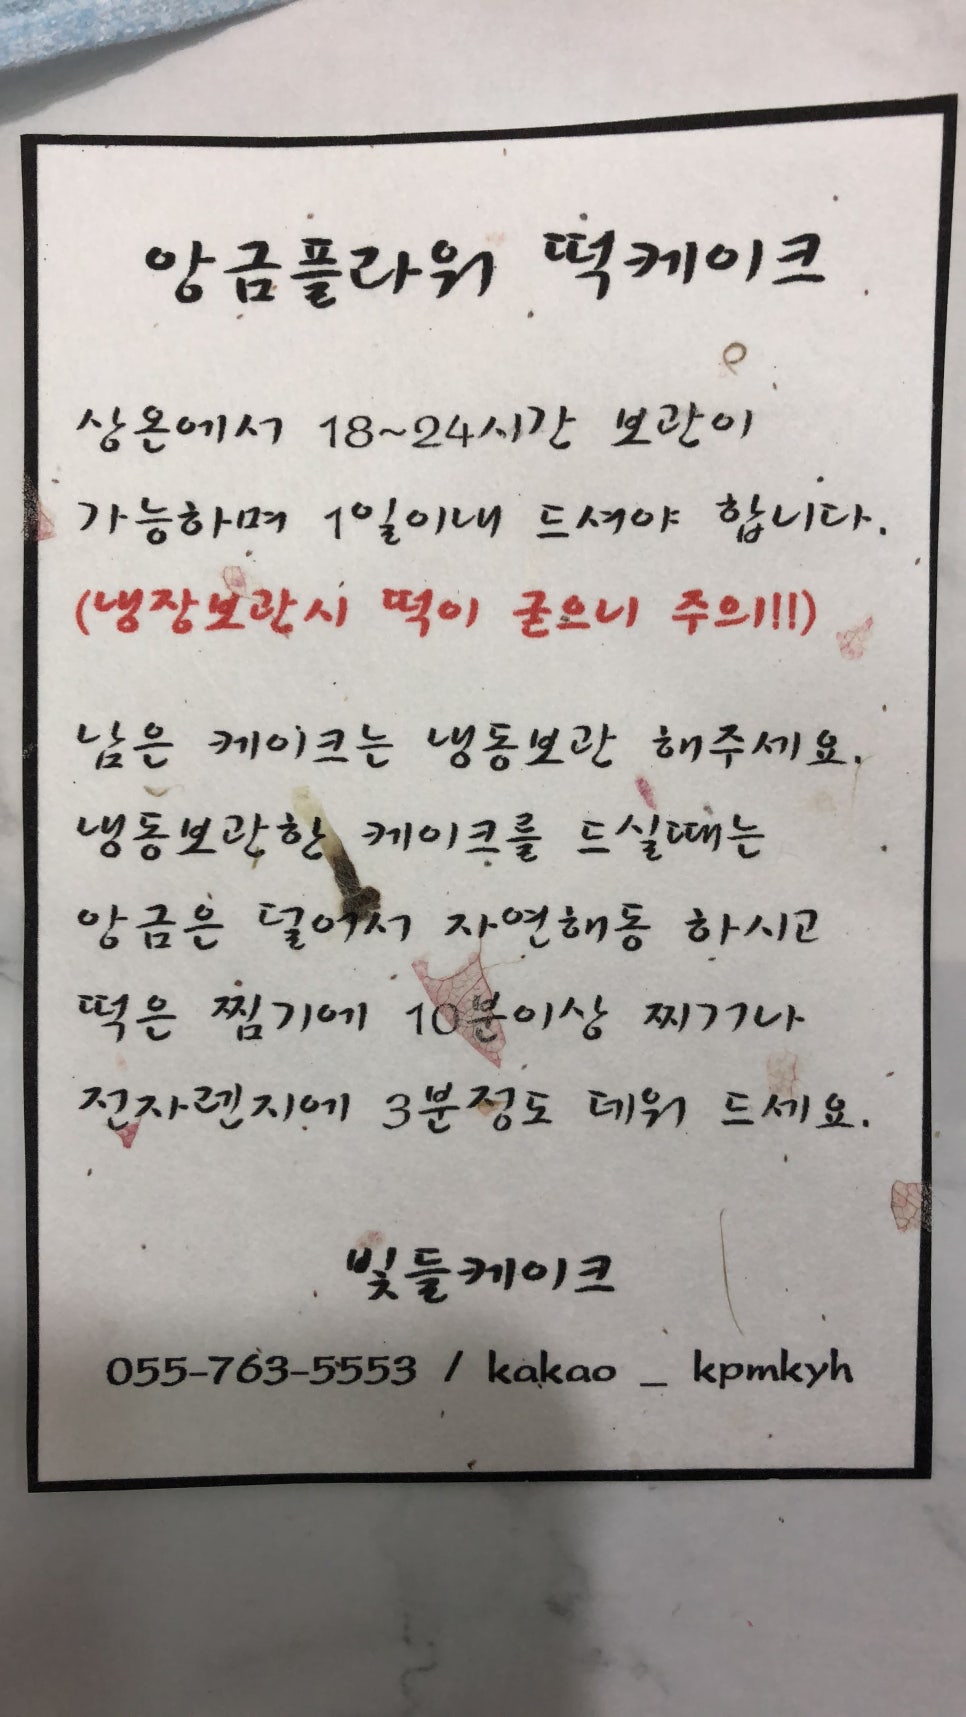 앙금플라워 떡케이크
상온에서 18~24시간 보관이
가능하며 1일이내 드셔야 합니다.
(냉장보관시 떡이 굳으니 주의!!!)
남은 케이크는 냉동보관 해주세요.
냉동보관한 케이크를 드실때는
앙금은 덜어서 자연해동 하시고
떡은 찜기에 10분이상 찌거나
전자렌지에 3분정도 데워 드세요.
빛들케이크
055-763-5553 / kakao _ kpmkyh